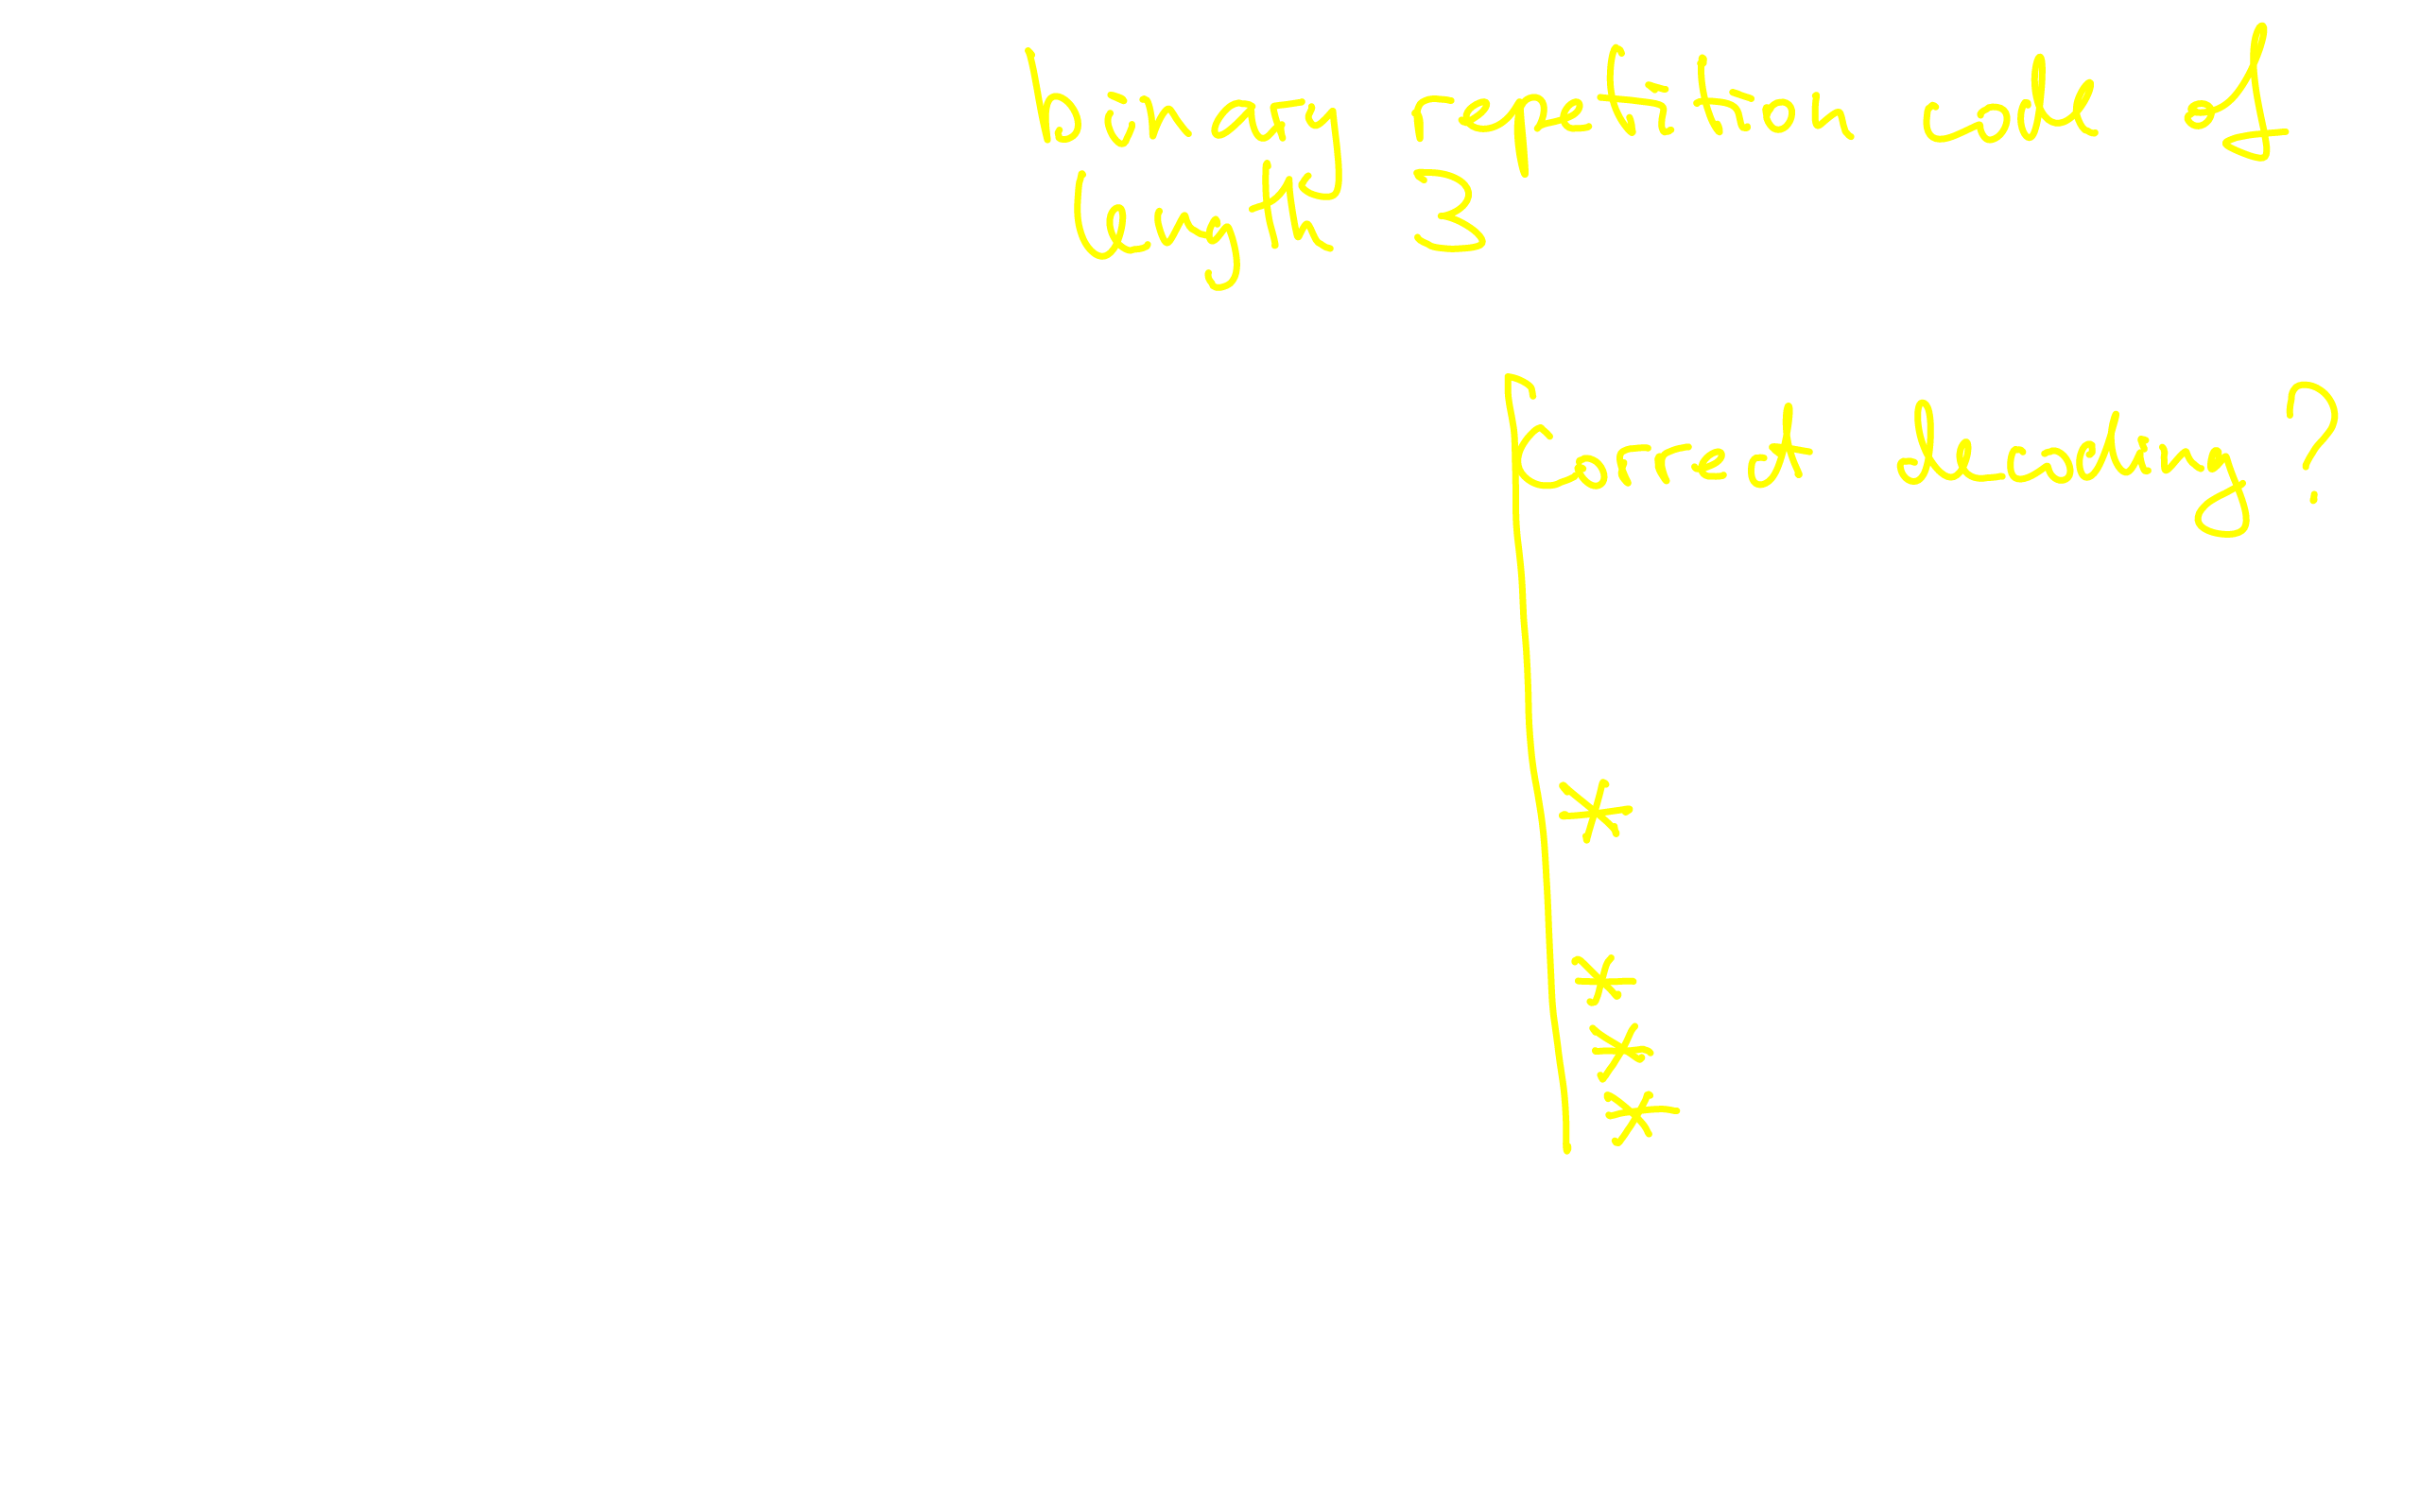 binary repetition code of
length 3
Correct decoding?
*
*
*
*